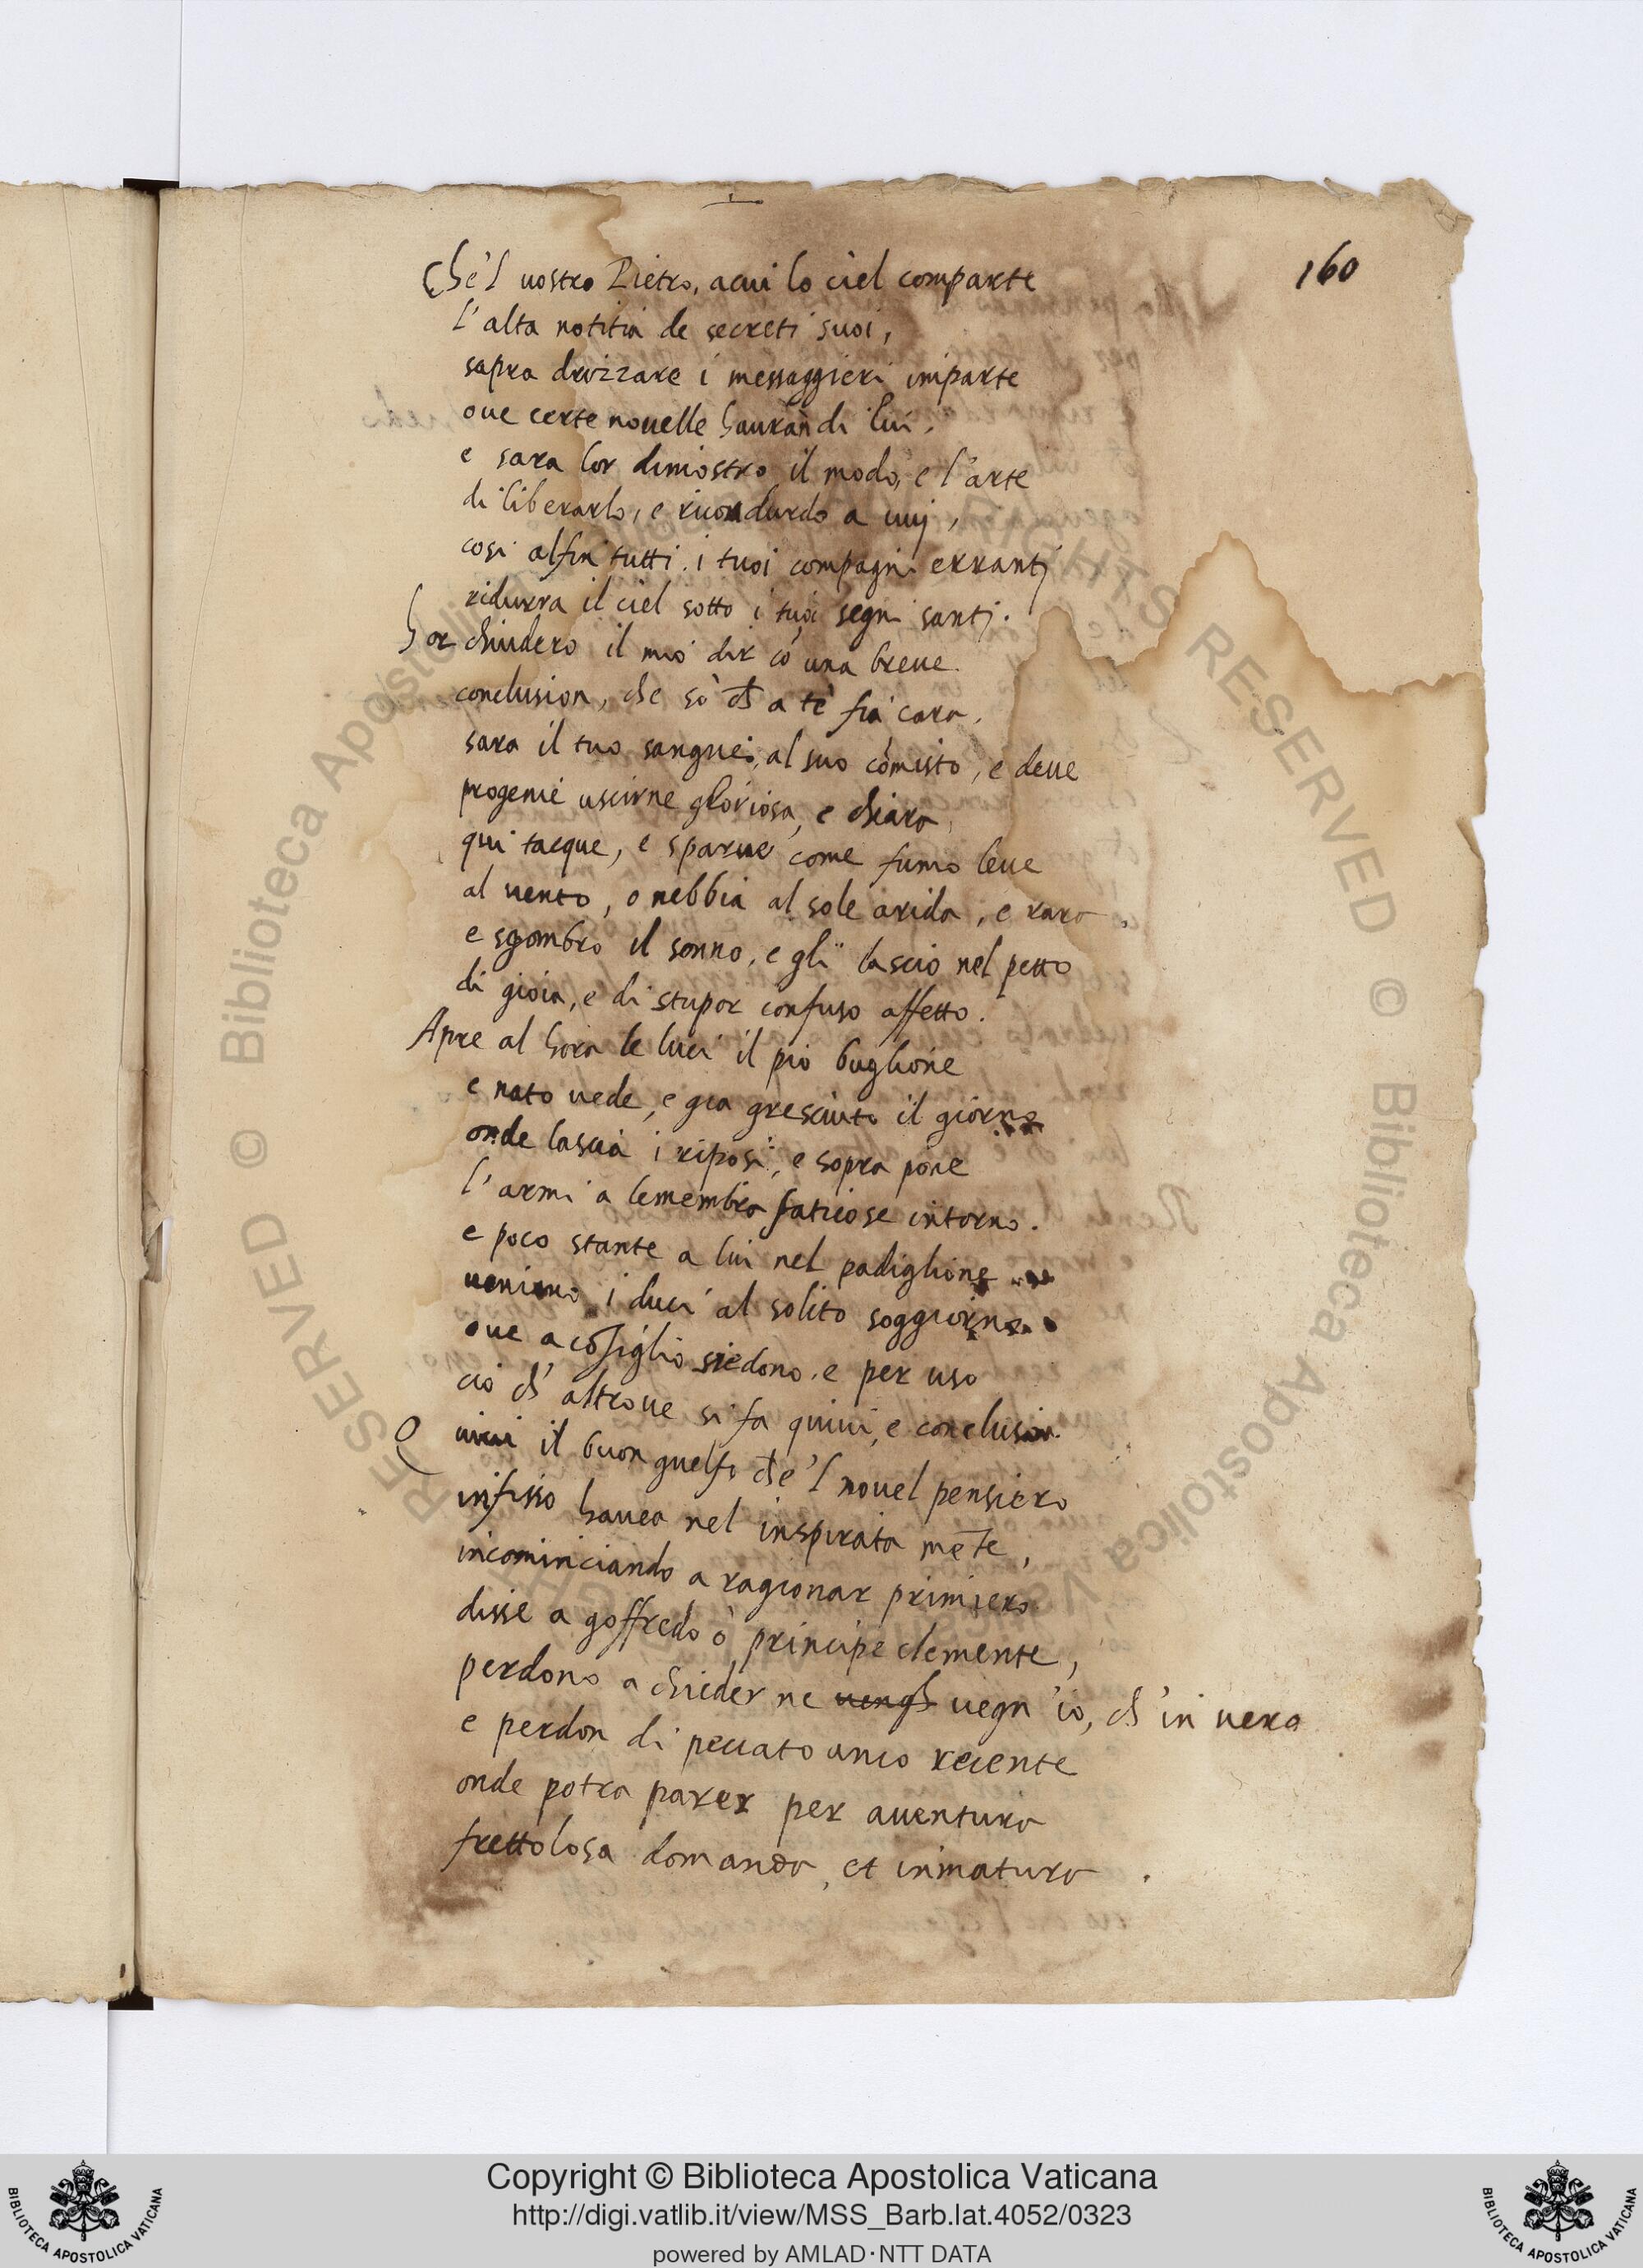 160
Che'l uostro Pietro, acui lo ciel comparte
l'alta notitia de secreti suoi,
sapra drizzare i messaggieri imparte
oue certe nouelle hauran di lui,
e sara lor dimostro il modo, e l'arte
di liberarlo, e ricondurlo a uuj,
cosi alfin tutti i tuoi compagni errantj
ridurra il ciel sotto i tuoi segni santj.
hor chiudero il mio dir cō una breue
conclusion, che sò ch a te fia cara,
sara il tuo sangue, al suo cōmisto, e deue
progenie uscirne gloriosa, e chiara,
qui tacque, e sparue come fumo leue
al uento, o nebbia al sole arida, e rara,
e sgombro il sonno, e gli lascio nel petto
di gioia, e di stupor confuso affetto.
Apre al hora le luci il pio buglione
e nato uede, e gia gresciuto il giorno
onde lascia i riposi, e sopra pone
l'armi a lemembra faticose intorno.
e poco stante a lui nel padiglione
ueniano i duci al solito soggiorno
oue a cōsiglio siedono, e per uso
cio ch' altroue si fa quiui, e concluso.
Quiui il buon guelfo che'l nouel pensiero
infisso hauea nel inspirata mēte,
incominciando a ragionar primiero
disse a goffredo ò principe clemente,
perdono a chieder ne uengh uegn'io, ch'in uero
e perdon di peccato anco recente
onde potra parer per auentura
frettolosa domanda, et inmatura.
RESERVED © Biblioteca Apostolica Vaticana
RIGHTS RESERVED © Biblioteca Apostolica Vaticana
Copyright © Biblioteca Apostolica Vaticana
http://digi.vatlib.it/view/MSS_Barb.lat.4052/0323
powered by AMLAD・NTT DATA
BIBLIOTECA APOSTOLICA VATICANA
BIBLIOTECA APOSTOLICA VATICANA